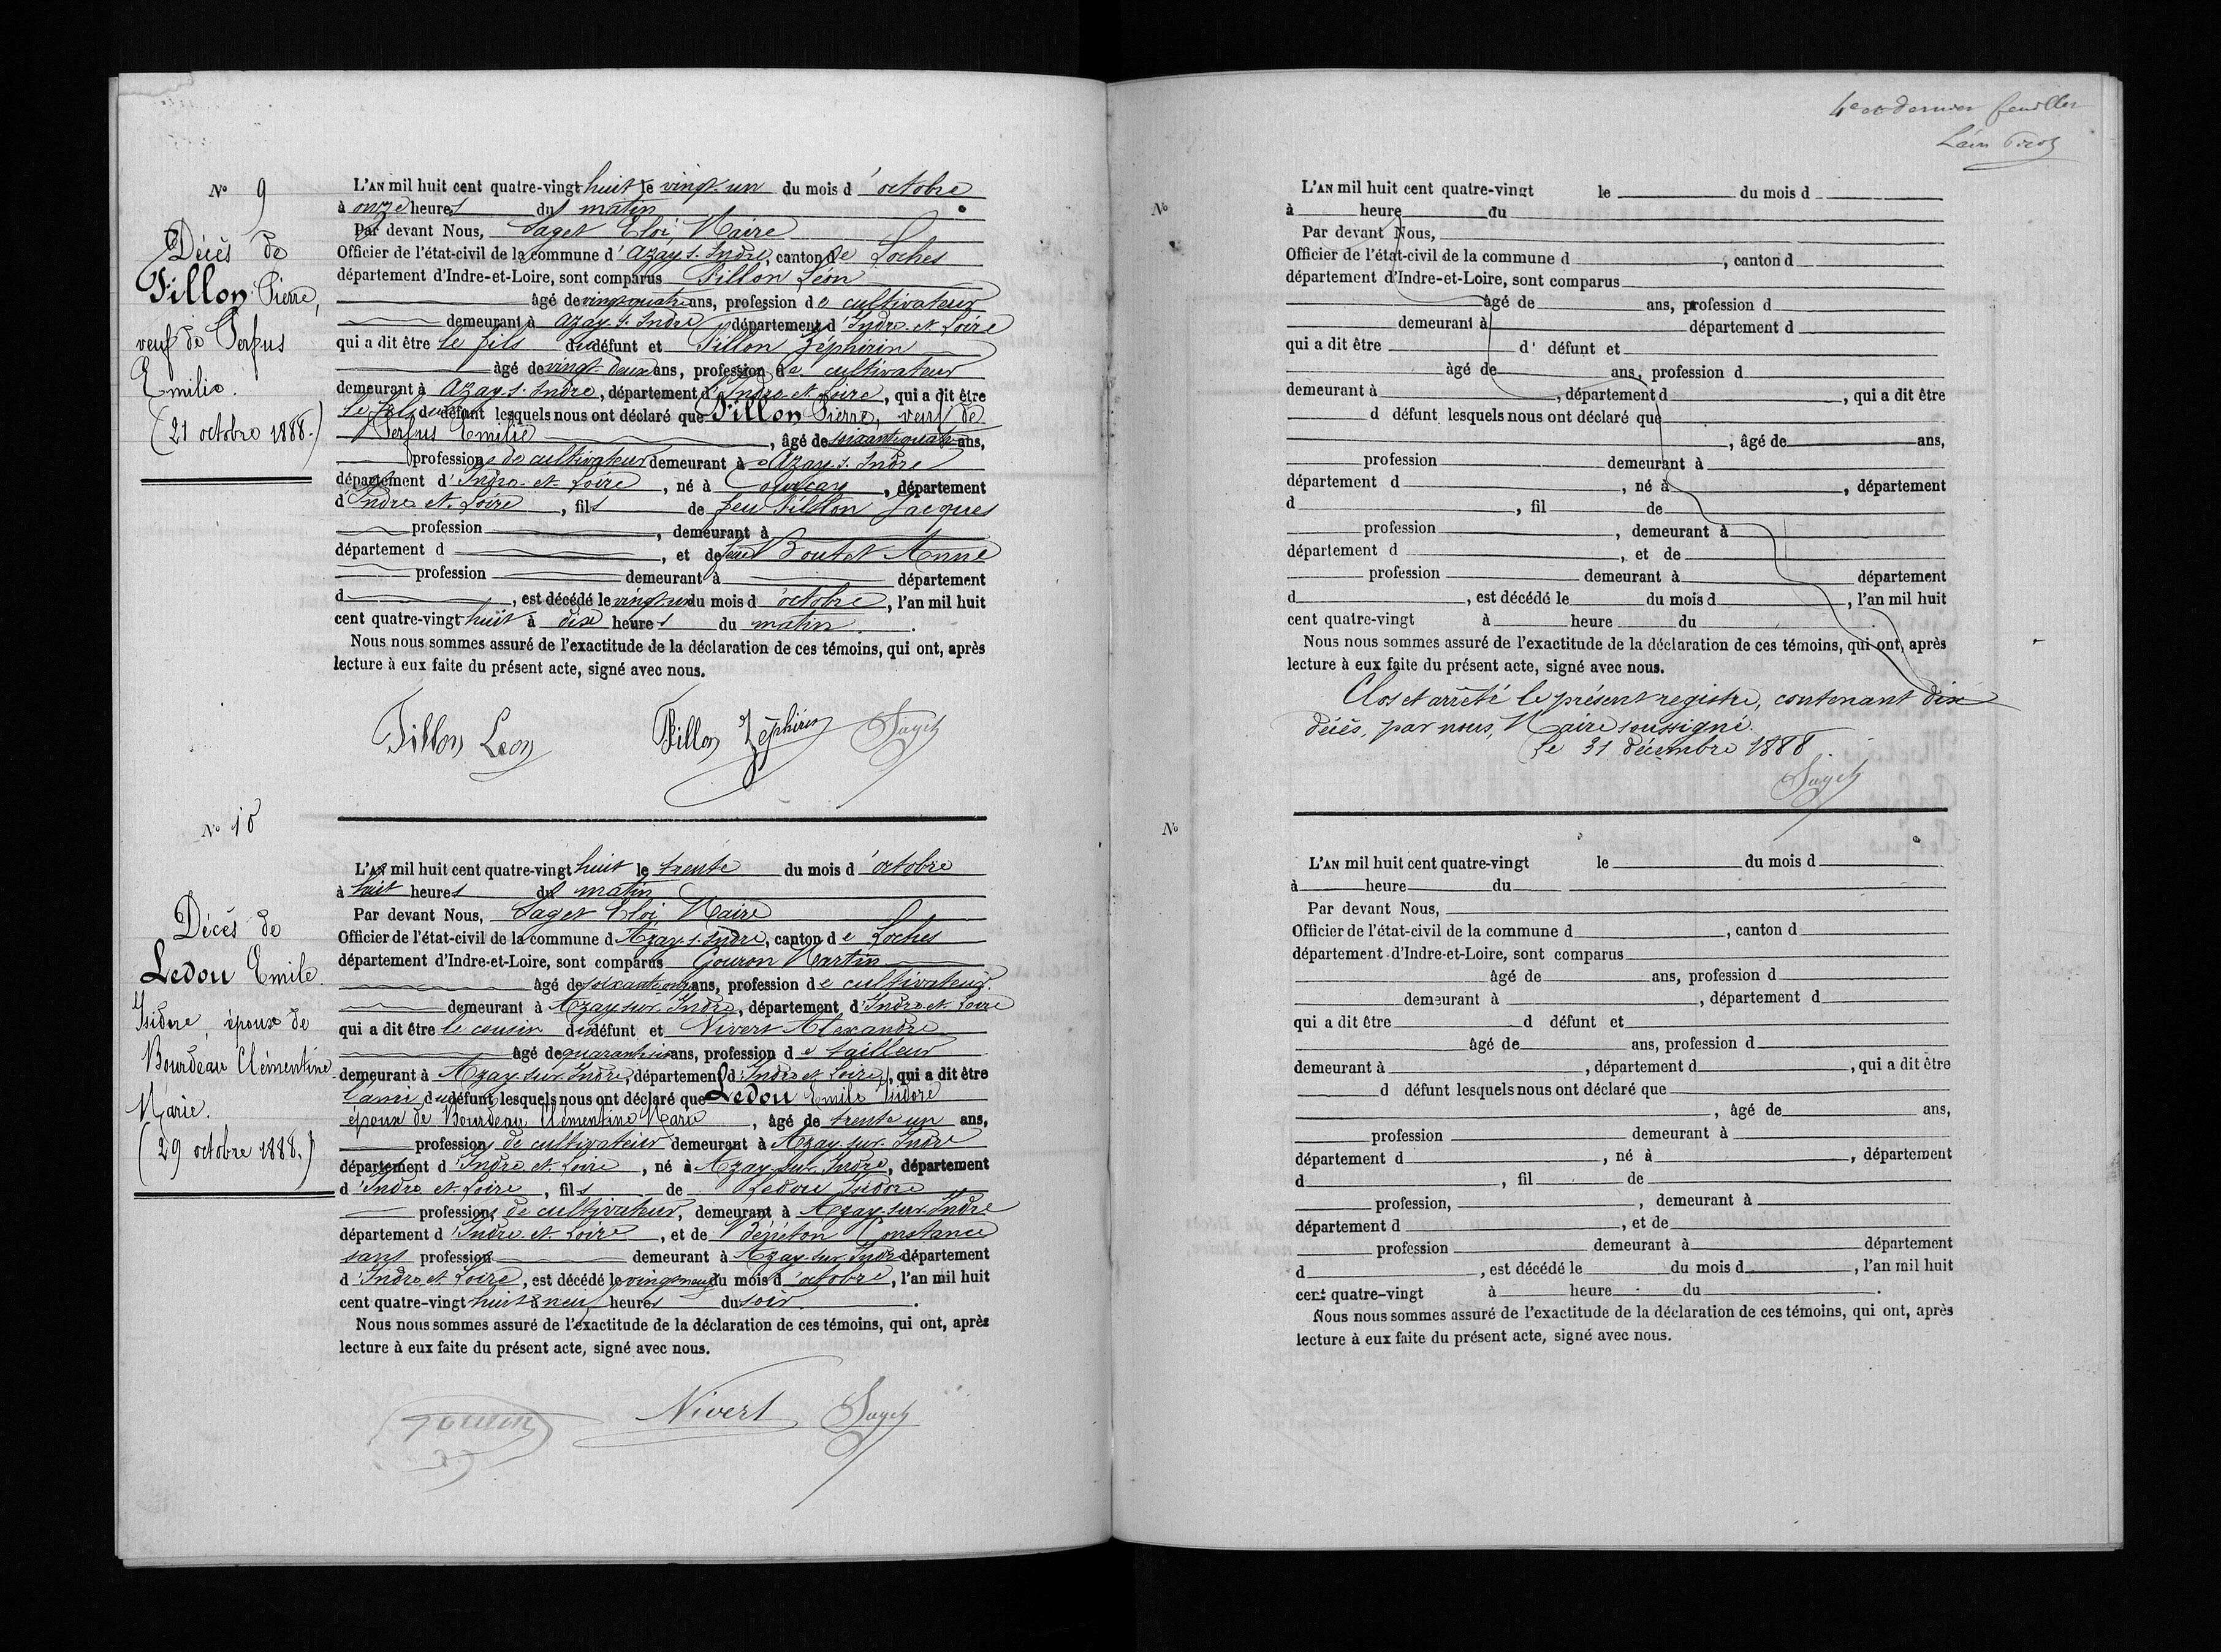 No 9
Décès de
Fillon Pierre,
veuf de Serpus
Emilie.
(21 octobre 1888.)
L'AN mil huit cent quatre-vingt huit le vingt-un du mois d'octobre
à onze heures du matin
Par devant Nous, Saget Eloi, Maire
Officier de l'état-civil de la commune d'Azay s. Indre, canton de Loches
département d'Indre-et-Loire, sont comparus Fillon Léon
âgé de vingt quatre ans, profession de cultivateur
demeurant à Azay s. Indre, département d'Indre et Loire
qui a dit être le fils du défunt et Fillon Zéphirin
âgé de vingt deux ans, profession de cultivateur
demeurant à Azay s. Indre, département d'Indre et Loire, qui a dit être
le fils du défunt lesquels nous ont déclaré que Fillon Pierre, veuf de
Serpus Emilie, âgé de soixante quatre ans,
profession de cultivateur demeurant à Azay s. Indre
département d'Indre et Loire, né à Courçay, département
d'Indre et Loire, fils de feu Fillon Jacques
profession, demeurant à
département d, et de feue Boutet Anne
profession demeurant à département
d, est décédé le vingt un du mois d'octobre, l'an mil huit
cent quatre-vingt huit à dix heures du matin.
Nous nous sommes assuré de l'exactitude de la déclaration de ces témoins, qui ont, après
lecture à eux faite du présent acte, signé avec nous.
Fillon Leon Fillon Zéphirin Saget
No 10
Décès de
Ledou Emile
Isidore, époux de
Bourdeau Clémentine
Marie.
(29 octobre 1888.)
L'AN mil huit cent quatre-vingt huit le trente du mois d'octobre
à huit heures du matin
Par devant Nous, Saget Eloi, Maire
Officier de l'état-civil de la commune d'Azay s. Indre, canton de Loches
département d'Indre-et-Loire, sont comparus Gouron Martin
âgé de soixante onze ans, profession de cultivateur
demeurant à Azay sur Indre, département d'Indre et Loire
qui a dit être le cousin du défunt et Nivert Alexandre
âgé de quarante six ans, profession de tailleur
demeurant à Azay sur Indre, département d'Indre et Loire, qui a dit être
l'ami du défunt lesquels nous ont déclaré que Ledou Emile Isidore
époux de Bourdeau Clémentine Marie, âgé de trente un ans,
profession de cultivateur demeurant à Azay sur Indre
département d'Indre et Loire, né à Azay sur Indre, département
d'Indre et Loire, fils de Ledou Isidore
profession de cultivateur, demeurant à Azay sur Indre
département d'Indre et Loire, et de Constance
sans profession demeurant à Azay sur Indre département
d'Indre et Loire, est décédé le vingt neuf du mois d'octobre, l'an mil huit
cent quatre-vingt huit à neuf heures du soir.
Nous nous sommes assuré de l'exactitude de la déclaration de ces témoins, qui ont, après
lecture à eux faite du présent acte, signé avec nous.
Gouron Nivert Saget
4e et dernier feuillet
No
L'AN mil huit cent quatre-vingt le du mois d
à heure du
Par devant Nous,
Officier de l'état-civil de la commune d, canton d
département d'Indre-et-Loire, sont comparus
âgé de ans, profession d
demeurant à département d
qui a dit être d' défunt et
âgé de ans, profession d
demeurant à, département d, qui a dit être
d défunt lesquels nous ont déclaré que
, âgé de ans,
profession demeurant à
département d, né à, département
d, fil de
profession, demeurant à
département d, et de
profession demeurant à département
d, est décédé le du mois d, l'an mil huit
cent quatre-vingt à heure du
Nous nous sommes assuré de l'exactitude de la déclaration de ces témoins, qui ont, après
lecture à eux faite du présent acte, signé avec nous.
Clos et arrêté le présent registre, contenant dix
décès, par nous, Maire soussigné.
Le 31 décembre 1888.
Saget
No
L'AN mil huit cent quatre-vingt le du mois d
à heure du
Par devant Nous,
Officier de l'état-civil de la commune d, canton d
département d'Indre-et-Loire, sont comparus
âgé de ans, profession d
demeurant à, département d
qui a dit être d défunt et
âgé de ans, profession d
demeurant à, département d, qui a dit être
d défunt lesquels nous ont déclaré que
, âgé de ans,
profession demeurant à
département d, né à, département
d, fil de
profession, demeurant à
département d, et de
profession demeurant à département
d, est décédé le du mois d, l'an mil huit
cent quatre-vingt à heure du.
Nous nous sommes assuré de l'exactitude de la déclaration de ces témoins, qui ont, après
lecture à eux faite du présent acte, signé avec nous.